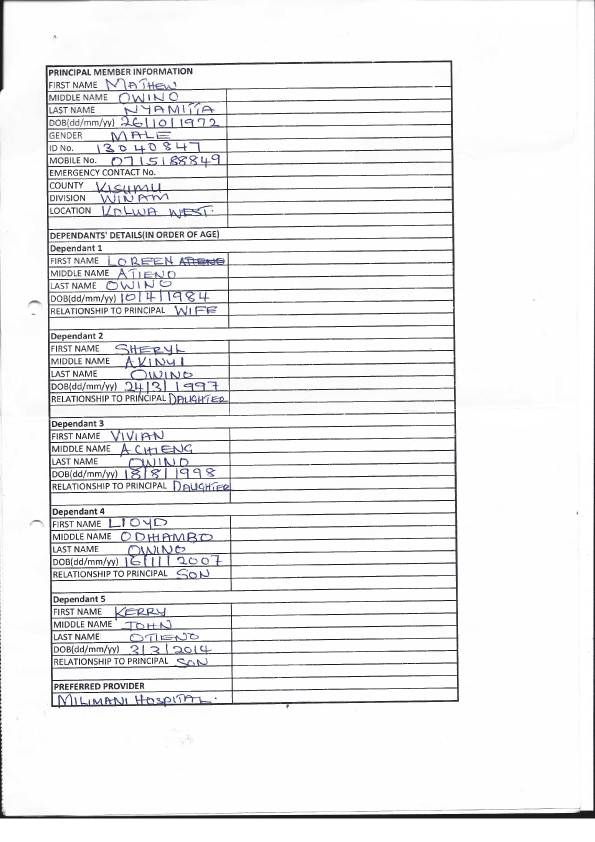 PRINCIPAL MEMBER INFORMATION
FIRST NAME MATHEW
MIDDLE NAME OWINO
LAST NAME NYAMITTA
DOB(dd/mm/yy) 26/10/1972
GENDER MALE
ID No. 13040847
MOBILE No. 0715188849
EMERGENCY CONTACT No.
COUNTY KISUMU
DIVISION WINAM
LOCATION KOLWA WEST.
DEPENDANTS' DETAILS(IN ORDER OF AGE)
Dependant 1
FIRST NAME LOREEN
MIDDLE NAME ATIENO
LAST NAME OWINO
DOB(dd/mm/yy) 10/4/1984
RELATIONSHIP TO PRINCIPAL WIFE
Dependant 2
FIRST NAME SHERYL
MIDDLE NAME AKINYI
LAST NAME OWINO
DOB(dd/mm/yy) 24/3/1997
RELATIONSHIP TO PRINCIPAL DAUGHTER
Dependant 3
FIRST NAME VIVIAN
MIDDLE NAME ACHIENG
LAST NAME OWINO
DOB(dd/mm/yy) 18/8/1998
RELATIONSHIP TO PRINCIPAL DAUGHTER
Dependant 4
FIRST NAME LLOYD
MIDDLE NAME ODHIAMBO
LAST NAME OWINO
DOB(dd/mm/yy) 16/11/2007
RELATIONSHIP TO PRINCIPAL SON
Dependant 5
FIRST NAME KERRY
MIDDLE NAME JOHN
LAST NAME OTIENO
DOB(dd/mm/yy) 3/3/2014
RELATIONSHIP TO PRINCIPAL SON
PREFERRED PROVIDER
MILIMANI HOSPITAL.